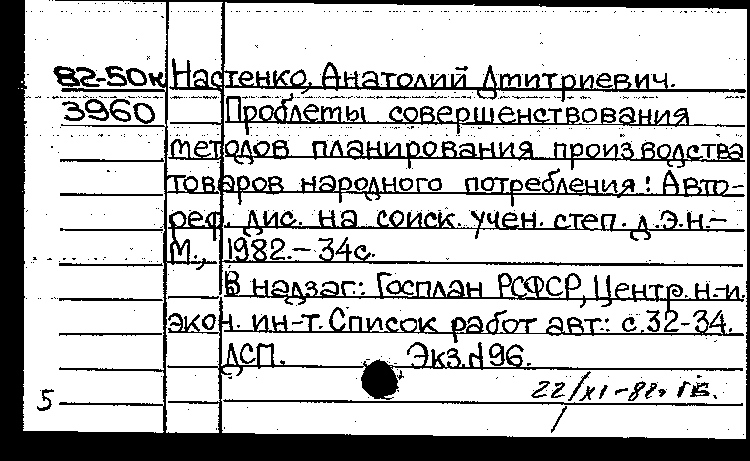 82-50к Настенко, Анатолий Дмитриевич.
3960 Проблемы совершенствования
методов планирования производства
товаров народного потребления: Авто-
реф. дис. на соиск. учен. степ. д.э.н.-
М., 1982.-34с.
В надзаг.: Госплан РСФСР, Центр. н-и.
экон. ин-т. Список работ авт.: с.32-34.
ДСП. Экз. №96.
22/XI-82г.
5